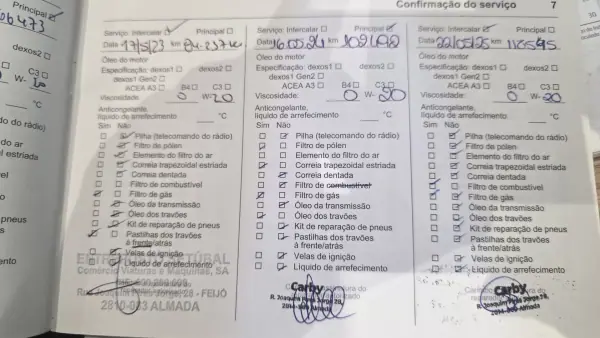 Principal
dexos2 □
C3 □
W-
°C
do do rádio)
do ar
l estriada
pneus
ento
Confirmação do serviço 7
Serviço: Intercalar Principal □
Data 17/5/23 km
Óleo do motor
Especificação: dexos1 □ dexos2 □
dexos1 Gen2 □
ACEA A3 □ B4 □ C3 □
Viscosidade: W-20
Anticongelante,
líquido de arrefecimento °C
Sim Não
Pilha (telecomando do rádio)
Filtro de pólen
Elemento do filtro do ar
Correia trapezoidal estriada
Correia dentada
Filtro de combustível
Filtro de gás
Óleo da transmissão
Óleo dos travões
Kit de reparação de pneus
Pastilhas dos travões
à frente/atrás
Velas de ignição
Líquido de arrefecimento
Comércio Viaturas e Máquinas, SA
28 - FEIJÓ
ALMADA
Serviço: Intercalar □ Principal
Data km
Óleo do motor
Especificação: dexos1 □ dexos2 □
dexos1 Gen2 □
ACEA A3 □ B4 □ C3 □
Viscosidade: O W-20
Anticongelante,
líquido de arrefecimento °C
Sim Não
Pilha (telecomando do rádio)
Filtro de pólen
Elemento do filtro do ar
Correia trapezoidal estriada
Correia dentada
Filtro de combustível
Filtro de gás
Óleo da transmissão
Óleo dos travões
Kit de reparação de pneus
Pastilhas dos travões
à frente/atrás
Velas de ignição
Líquido de arrefecimento
Carby
Serviço: Intercalar Principal □
Data 22/05/25 km 116595
Óleo do motor
Especificação: dexos1 □ dexos2 □
dexos1 Gen2 □
ACEA A3 □ B4 □ C3 □
Viscosidade: O W-20
Anticongelante,
líquido de arrefecimento °C
Sim Não
Pilha (telecomando do rádio)
Filtro de pólen
Elemento do filtro do ar
Correia trapezoidal estriada
Correia dentada
Filtro de combustível
Filtro de gás
Óleo da transmissão
Óleo dos travões
Kit de reparação de pneus
Pastilhas dos travões
à frente/atrás
Velas de ignição
Líquido de arrefecimento
Carby